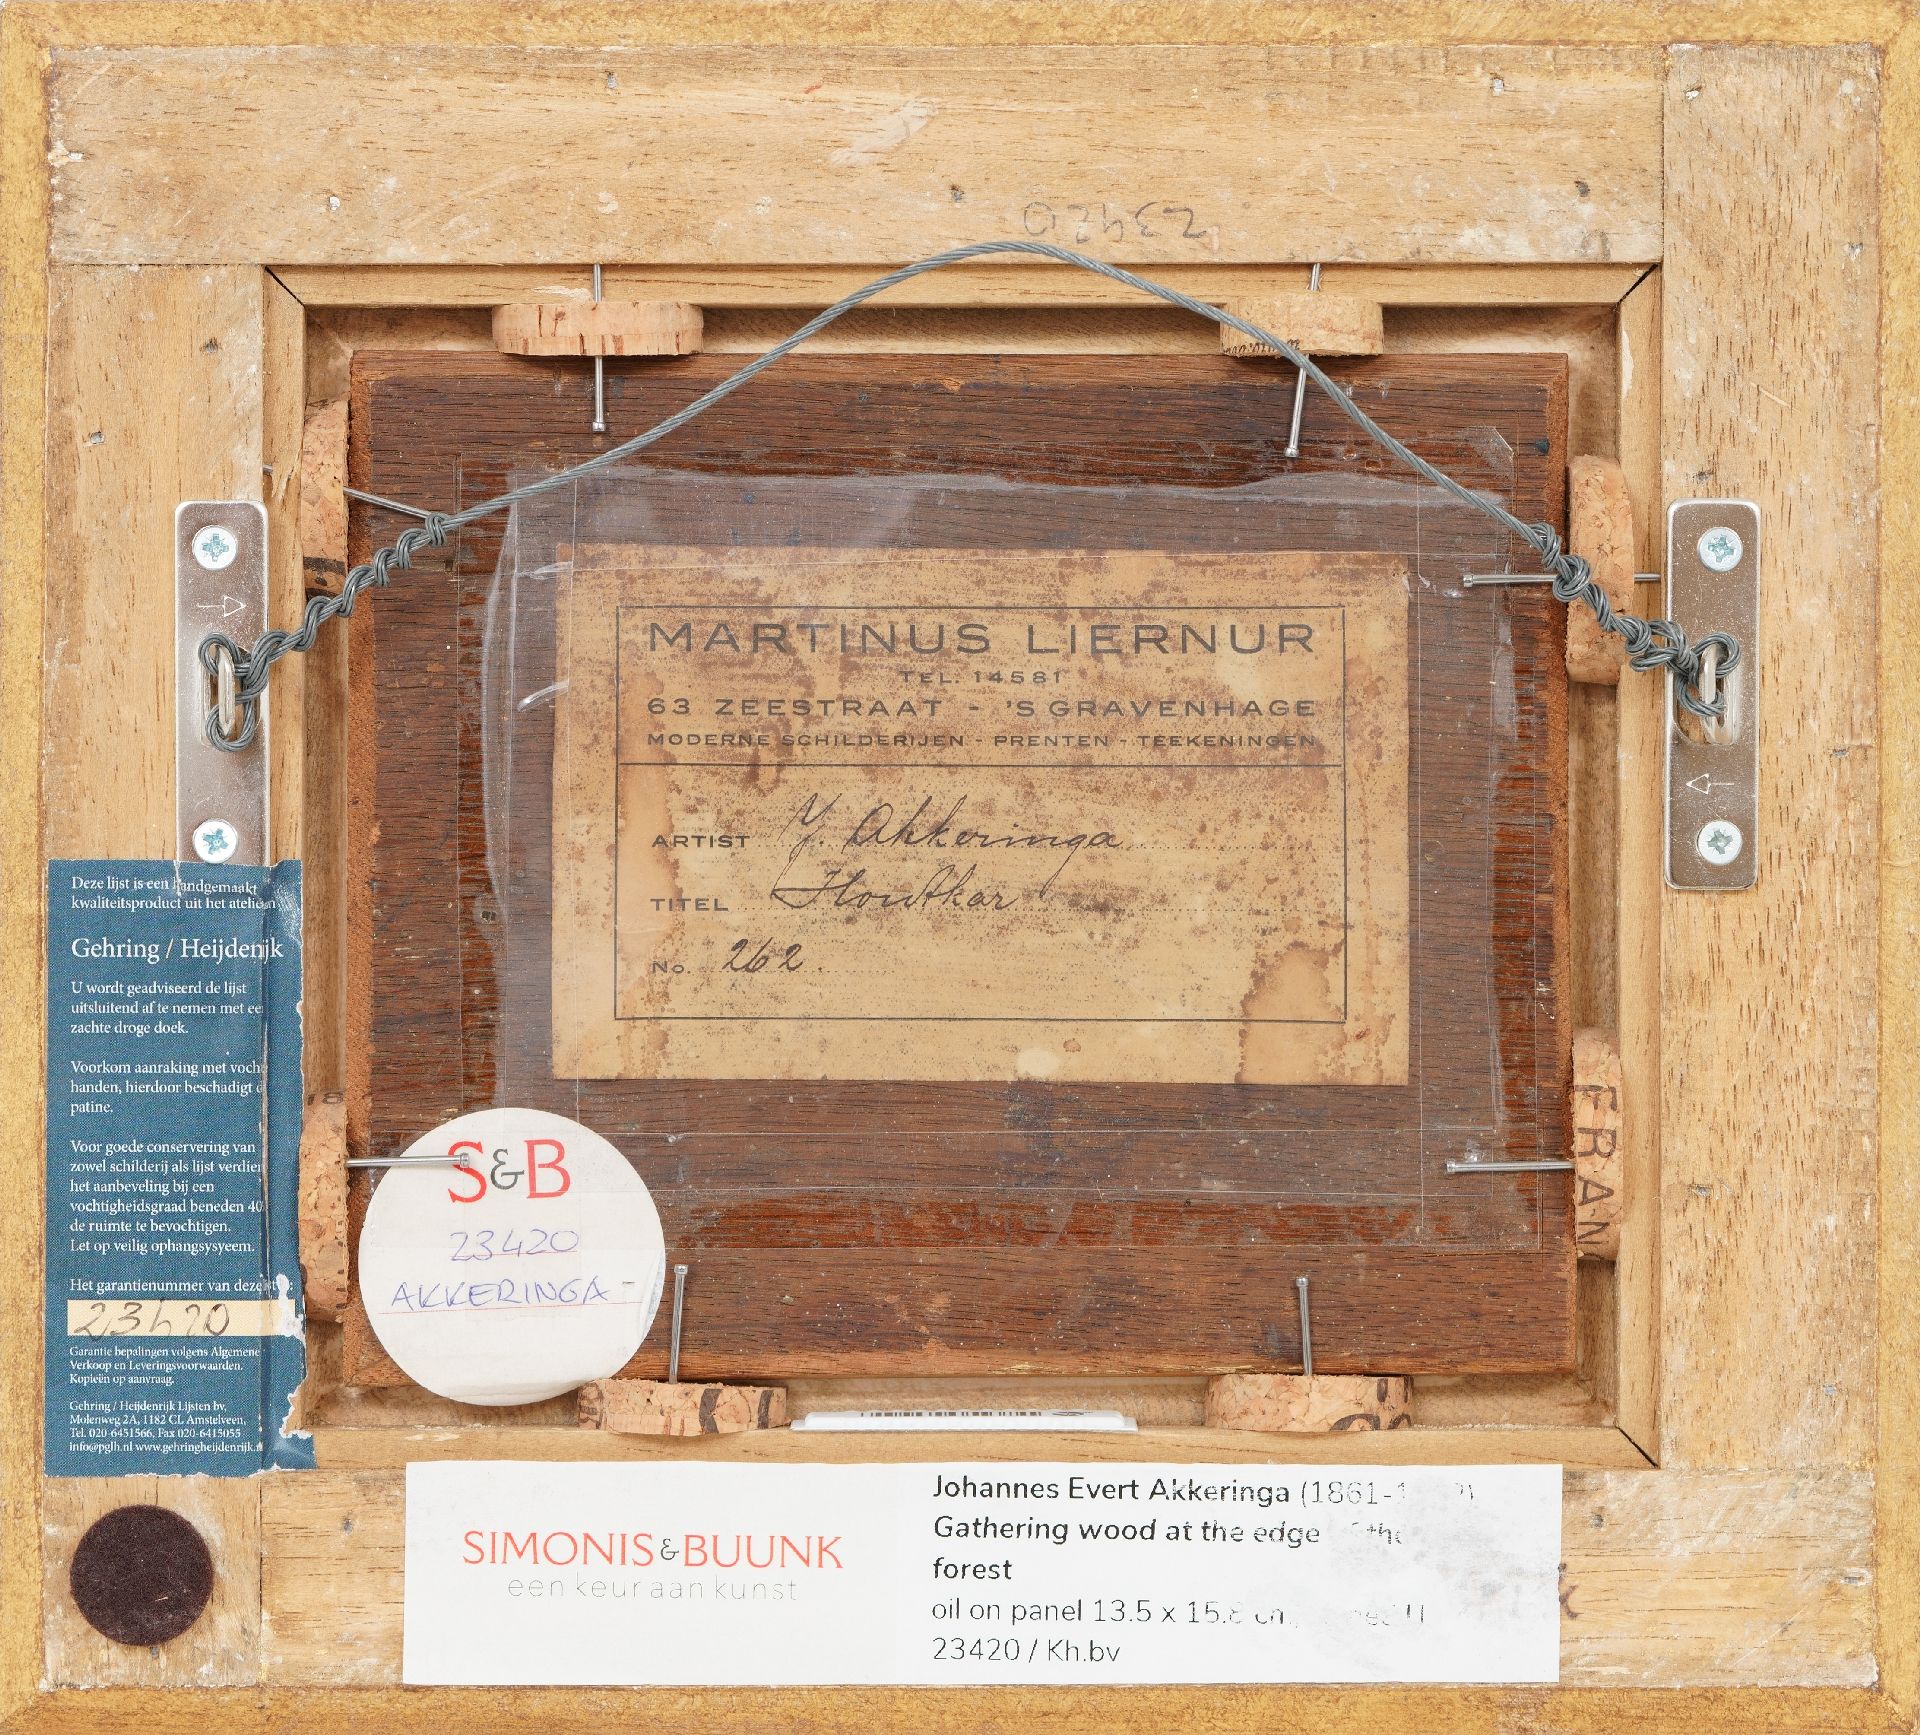 23420
MARTINUS LIERNUR
TEL. 14581
63 ZEESTRAAT - 'S GRAVENHAGE
MODERNE SCHILDERIJEN - PRENTEN - TEEKENINGEN
ARTIST Y. Akkeringa
TITEL Houtkar
No. 262.
Deze lijst is een handgemaakt
kwaliteitsproduct uit het atelier
Gehring / Heijdenrijk
U wordt geadviseerd de lijst
uitsluitend af te nemen met een
zachte droge doek.
Voorkom aanraking met
handen, hierdoor beschadigt
patine.
Voor goede conservering van
zowel schilderij als lijst
het aanbeveling bij een
vochtigheidsgraad beneden 40
de ruimte te bevochtigen.
Let op veilig ophangsysyeem.
Het garantienummer van deze
23420
Garantie bepalingen volgens Algemene
Verkoop en Leveringsvoorwaarden.
Kopieën op aanvraag.
Gehring / Heijdenrijk Lijsten bv,
Molenweg 2A, 1182 CL Amstelveen,
Tel. 020-6451566, Fax 020-6415055
info@pglh.nl www.gehringheijdenrijk.
S&B
23420
AKKERINGA-
FRAN
SIMONIS&BUUNK
een keur aan kunst
Johannes Evert Akkeringa (1861-
Gathering wood at the edge
forest
oil on panel 13.5 x 15.8 cm,
23420 / Kh.bv